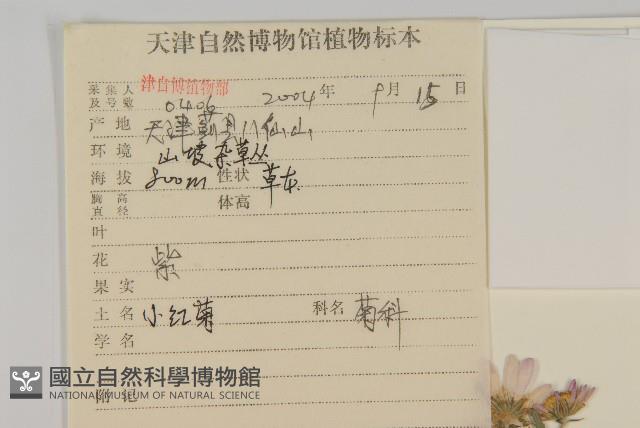 天津自然博物馆植物标本
采集人及号数 津自博植物部 0406 2004年9月15日
产地 天津蓟县八仙山
环境 山坡杂草丛
海拔 800m 性状 草本
胸高直径 体高
叶
花 紫
果实
土名 小红菊 科名 菊科
学名
附记
國立自然科學博物館
NATIONAL MUSEUM OF NATURAL SCIENCE